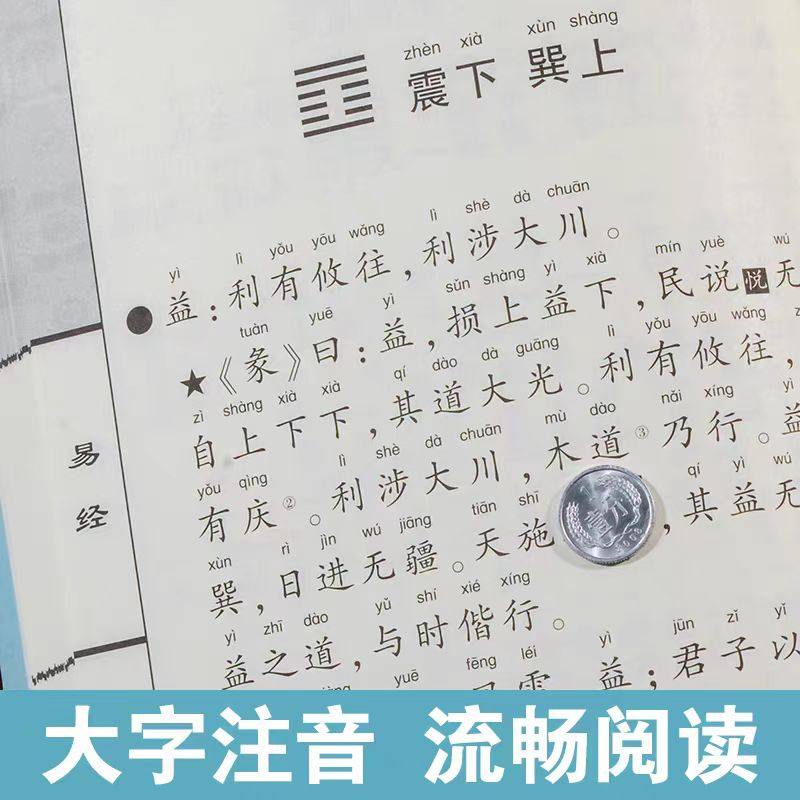 zhèn xià xùn shàng
震下 巽上
yì lì yǒu yōu wǎng lì shè dà chuān
益：利有攸往，利涉大川。
tuàn yuē yì sǔn shàng yì xià mín yuè wú
★《彖》曰：益，损上益下，民说悦无
zì shàng xià xià qí dào dà guāng lì yǒu yōu wǎng z
自上下下，其道大光。利有攸往，
yǒu qìng lì shè dà chuān mù dào nǎi xíng
有庆②。利涉大川，木道③乃行。益
xùn rì jìn wú jiāng tiān shī qí yì wú
巽，日进无疆。天施，其益无
yì zhī dào yǔ shí xié xíng
益之道，与时偕行。
yuē fēng léi yì jūn zǐ yǐ
益；君子以
易经
壹分
大字注音 流畅阅读